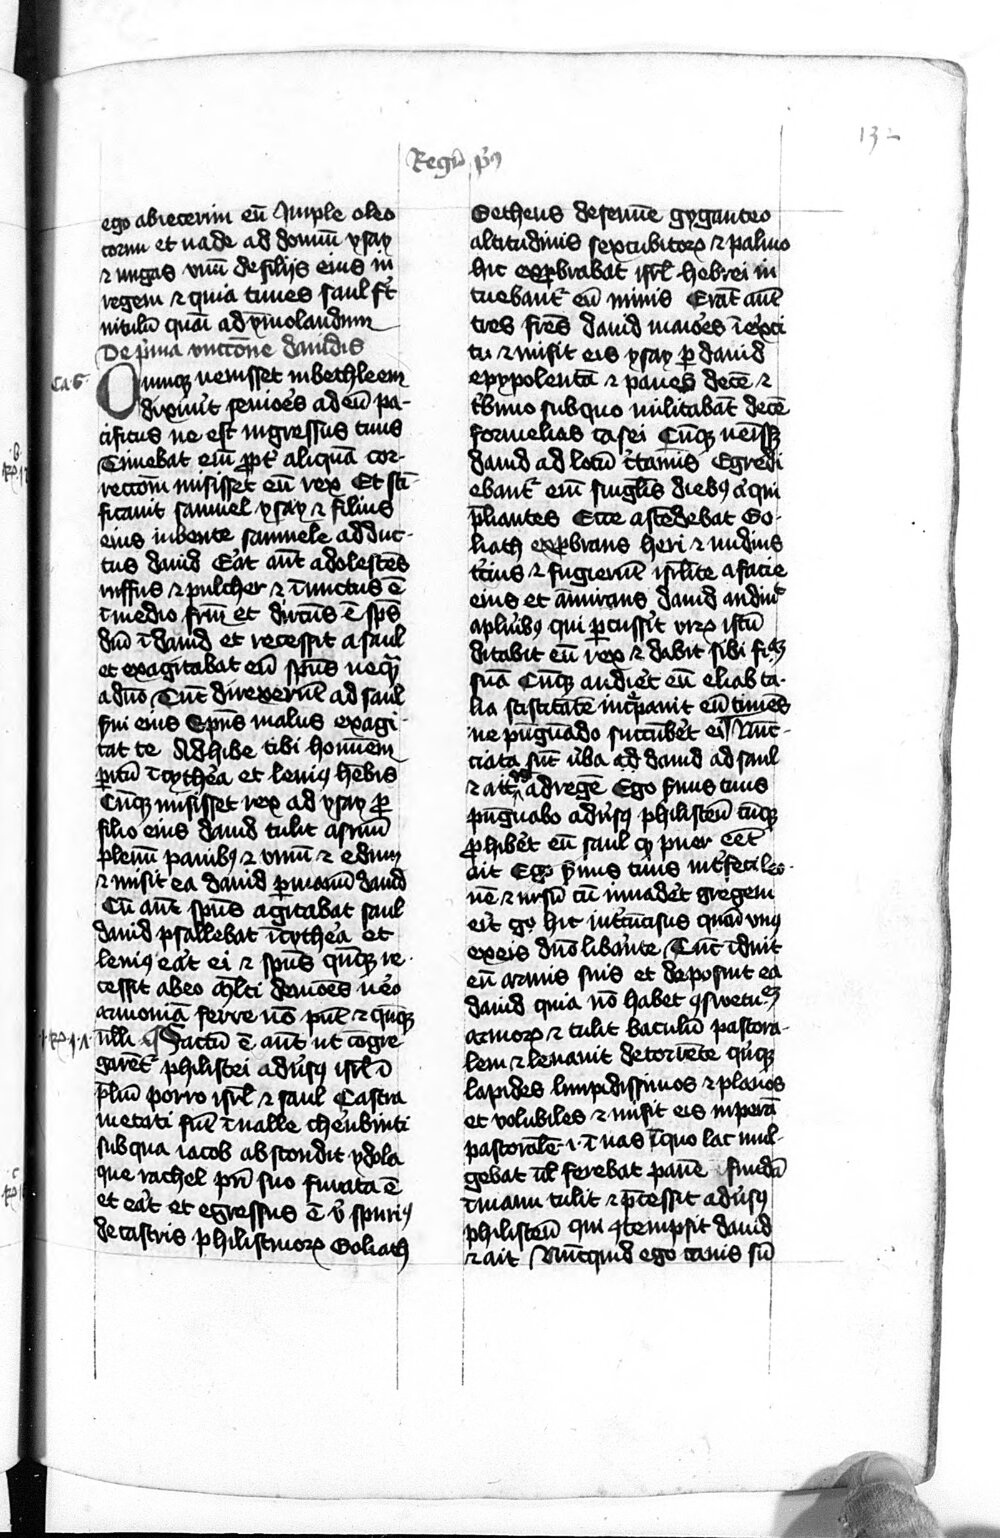 132
Regū pⁱ⁹
ego abiecerim eū Imple oleo
cornu et uade ad domū ysay
⁊ ungas vnū de filijs eius in
regem ⁊ quia times saul fac
uitulū quasi ad ymolandum
De prima vnctione dauidis
Ca 6
Cunq̄ uenisset in bethleem
dixerūt seniores ad eū pa-
cificus ne est ingressus tuus
Timebat em̄ ꝓpt̄ aliquā cor-
rectiom̄ misisset eū rex Et scī-
ficauit samuel ysay ⁊ filius
eius iubente samuele adduc-
tus dauid Erat aut̄ adolescēs
ruffus ⁊ pulcher ⁊ īunctus ē
ī medio frūm et directus ē sp̄s
dn̄i ī dauid et recessit a saul
et exagitabat eū sp̄us neqm̄
a dn̄o Tūc dixerunt ad saul
s̄ui eius Sp̄us malus exagi-
tat te Adhibe tibi hominem
ꝑitū ī cythera et leuius hēbis
Cūq̄ misisset rex ad ysay ꝓ
filio eius dauid tulit asinum
plenū panibꝰ ⁊ vinū ⁊ edum
⁊ misit ea dauid ꝑ manū dauid
Cū aut̄ sp̄us agitabat saul
dauid psallebat ī cythera et
leuiꝰ erat ei ⁊ sp̄us q̄nq̄ re-
cessit ab eo Multi demones uero
armoniā ferre nō pn̄t ⁊ q̄nq̄
nulli ¶ Factū ē aut̄ ut congre
garent̄ philistei aduersꝰ isrl̄ ī
prelio porro isrl̄ ⁊ saul Castra
metati sunt ī ualle therebinti
sub qua iacob abscondit ydola
que rachel pr̄i suo furata ē
et erat et egressus ē vir spuriꝰ
de castris philistinorꝝ Goliath
Getheus de semine gyganteo
altitudinis sex cubitorꝝ ⁊ palmo
hic exꝓbrabat isrl̄ hebrei in
tuebant̄ eū minis Erāt aut̄
tres frēs dauid maiores ī exerci
tu ⁊ misit eis ysay ꝑ dauid
epypolentā ⁊ panes decē ⁊
tribuno sub quo militabāt decē
formellas casei Cūq̄ uenisset
dauid ad locū certaminis Egredi
ebant̄ em̄ singulis diebꝰ a qui
preliantes Ecce ascēdebat Go-
liath exꝓbrans heri ⁊ nudius
tertius ⁊ fugierunt isrlīte a facie
eius et āmirans dauid audiuit
a pluribꝰ qui ꝑcussit virꝝ istū
ditabit eū rex ⁊ dabit sibi filiam
suā Cūq̄ audiret eū eliab ta-
lia sciscitantē increpauit eū timēs
ne pugnādo succūberet ei Nunc-
ciata sunt ūba ad dauid ad saul
⁊ ait dd ad regē Ego s̄uus tuus
pugnabo aduersꝰ philisteū cūq̄
ꝓhiberet eū saul qꝫ puer eet
ait Ego s̄uus tuus interfeci leo-
nē ⁊ ursū cū inuaderet gregem
erit g̊ hic incircūcisus quasi vnꝰ
ex eis dn̄o liberante Tūc īduit
eū armis suis et deposuit ea
dauid quia nō habet ꝯswetu͞em
armorꝝ ⁊ tulit baculū pastora-
lem ⁊ leuauit de torrēte quīqꝫ
lapides limpidissimos ⁊ planos
et volubiles ⁊ misit eis in peram
pastoralē .i. ī uas ī quo lac mul-
gebat ul̄ ferebat panē ⁊ fundā
ī manu tulit ⁊ ꝓcessit aduersꝰ
philisteū qui ꝯtempsit dauid
⁊ ait Nūncquid ego canis sū